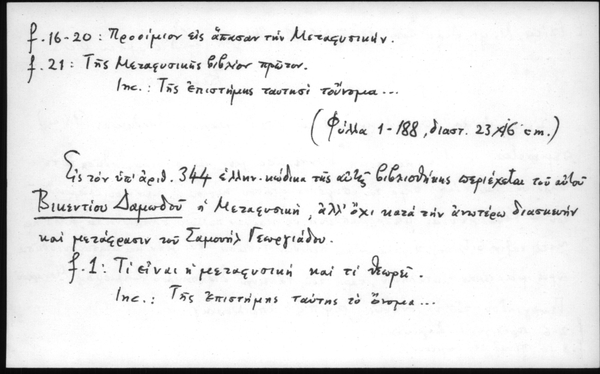 f. 16-20 : Προοίμιον εἰς ἅπασαν τὴν Μεταφυσικήν.
f. 21 : Τῆς Μεταφυσικῆς βιβλίον πρῶτον.
Inc. : Τῆς ἐπιστήμης ταυτησὶ τοὔνομα ...
(Φύλλα 1-188, διαστ. 23×16 cm.)
Εἰς τὸν ὑπ' ἀριθ. 344 ἑλλην. κώδικα τῆς αὐτῆς βιβλιοθήκης περιέχεται τοῦ αὐτοῦ
Βικεντίου Δαμωδοῦ ἡ Μεταφυσική, ἀλλ' ὄχι κατὰ τὴν ἀνωτέρω διασκευὴν
καὶ μετάφρασιν τοῦ Σαμουὴλ Γεωργιάδου.
f. 1 : Τί εἶναι ἡ μεταφυσικὴ καὶ τί θεωρεῖ.
Inc. : Τῆς ἐπιστήμης ταύτης τὸ ὄνομα ...